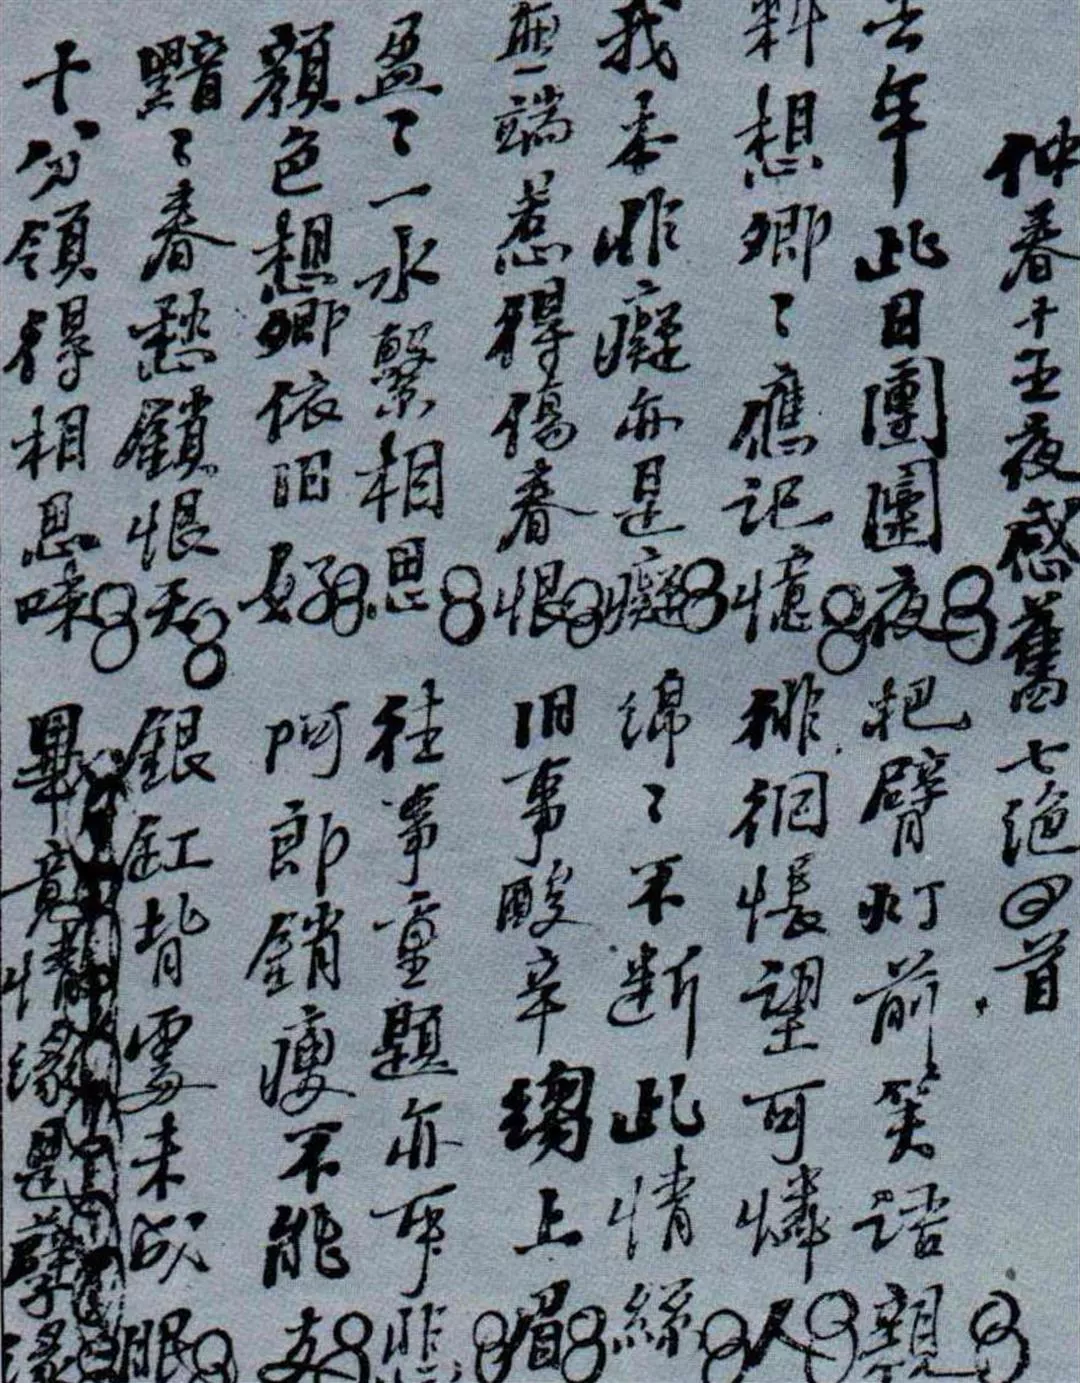 仲春十五夜感舊七絕四首
去年此日團圞夜把臂灯前笑語親
料想卿〻應記憶徘徊悵望可憐人
我本非癡亦是癡綿〻不斷此情絲
無端惹得傷春恨旧事酸辛縐上眉
盈〻一水繫相思往事重題亦可悲
顏色想卿依旧好阿郎銷瘦不能支
黯〻春愁鎖恨天銀缸背處未成眠
十分領得相思味畢竟情緣是孽緣